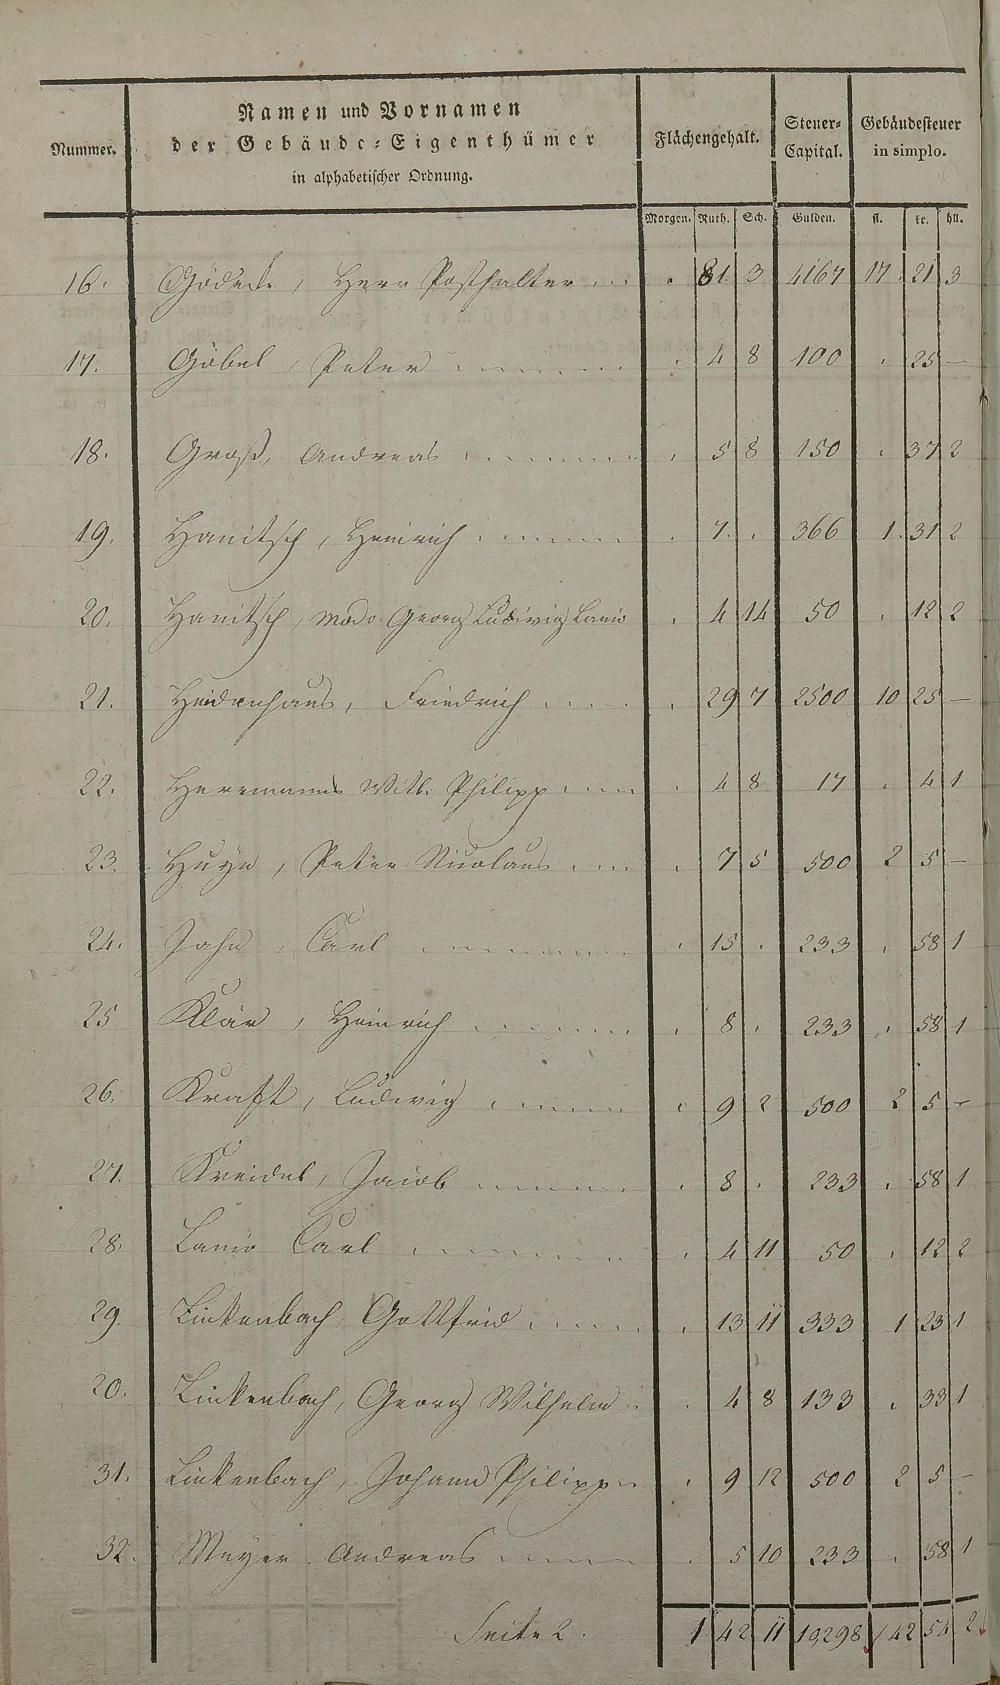 Nummer.
Namen und Vornamen
der Gebäude-Eigenthümer
in alphabetischer Ordnung.
Flächengehalt.
Steuer-
Capital.
Gebäudesteuer
in simplo.
Morgen. Ruth. Sch. Gulden. fl. kr. hll.
16. Gödecke, Herr Posthalter . . . . 81. 3 4167 17. 21 3
17. Göbel, Peter . . . . 4 8 100 . 25 —
18. Groß, Andreas . . . . 5 8 150 . 37 2
19. Hanitsch, Heinrich . . . . 7. . 366 1. 31 2
20. Hanitsch, modo Georg Ludwig Lanio . 4 14 50 . 12 2
21. Heidenhaus, Friedrich . . . . 29 7 2500 10 25 —
22. Herrmanns Witb. Philipp . . . . 4 8 17 . 4 1
23. Huyn, Peter Nicolaus . . . . 7 5 500 2 5 —
24. Jahn, Carl . . . . 15 . 233 . 58 1
25 Klär, Heinrich . . . . 8 . 233 . 58 1
26. Kraft, Ludwig . . . . 9 2 500 2 5 —
27. Kreidel, Jacob . . . . 8 . 233 . 58 1
28. Lanio Carl . . . . 4 11 50 . 12 2
29. Linkenbach, Gottfrid . . . . 13 11 333 1 23 1
20. Linkenbach, Georg Wilhelm . . 4 8 133 . 33 1
31. Linkenbach, Johann Philipp . . 9 12 500 2 5 —
32. Meyer Andreas . . . . 5 10 233 . 58 1
Seite 2. 1 42 11 10298 42 54 2